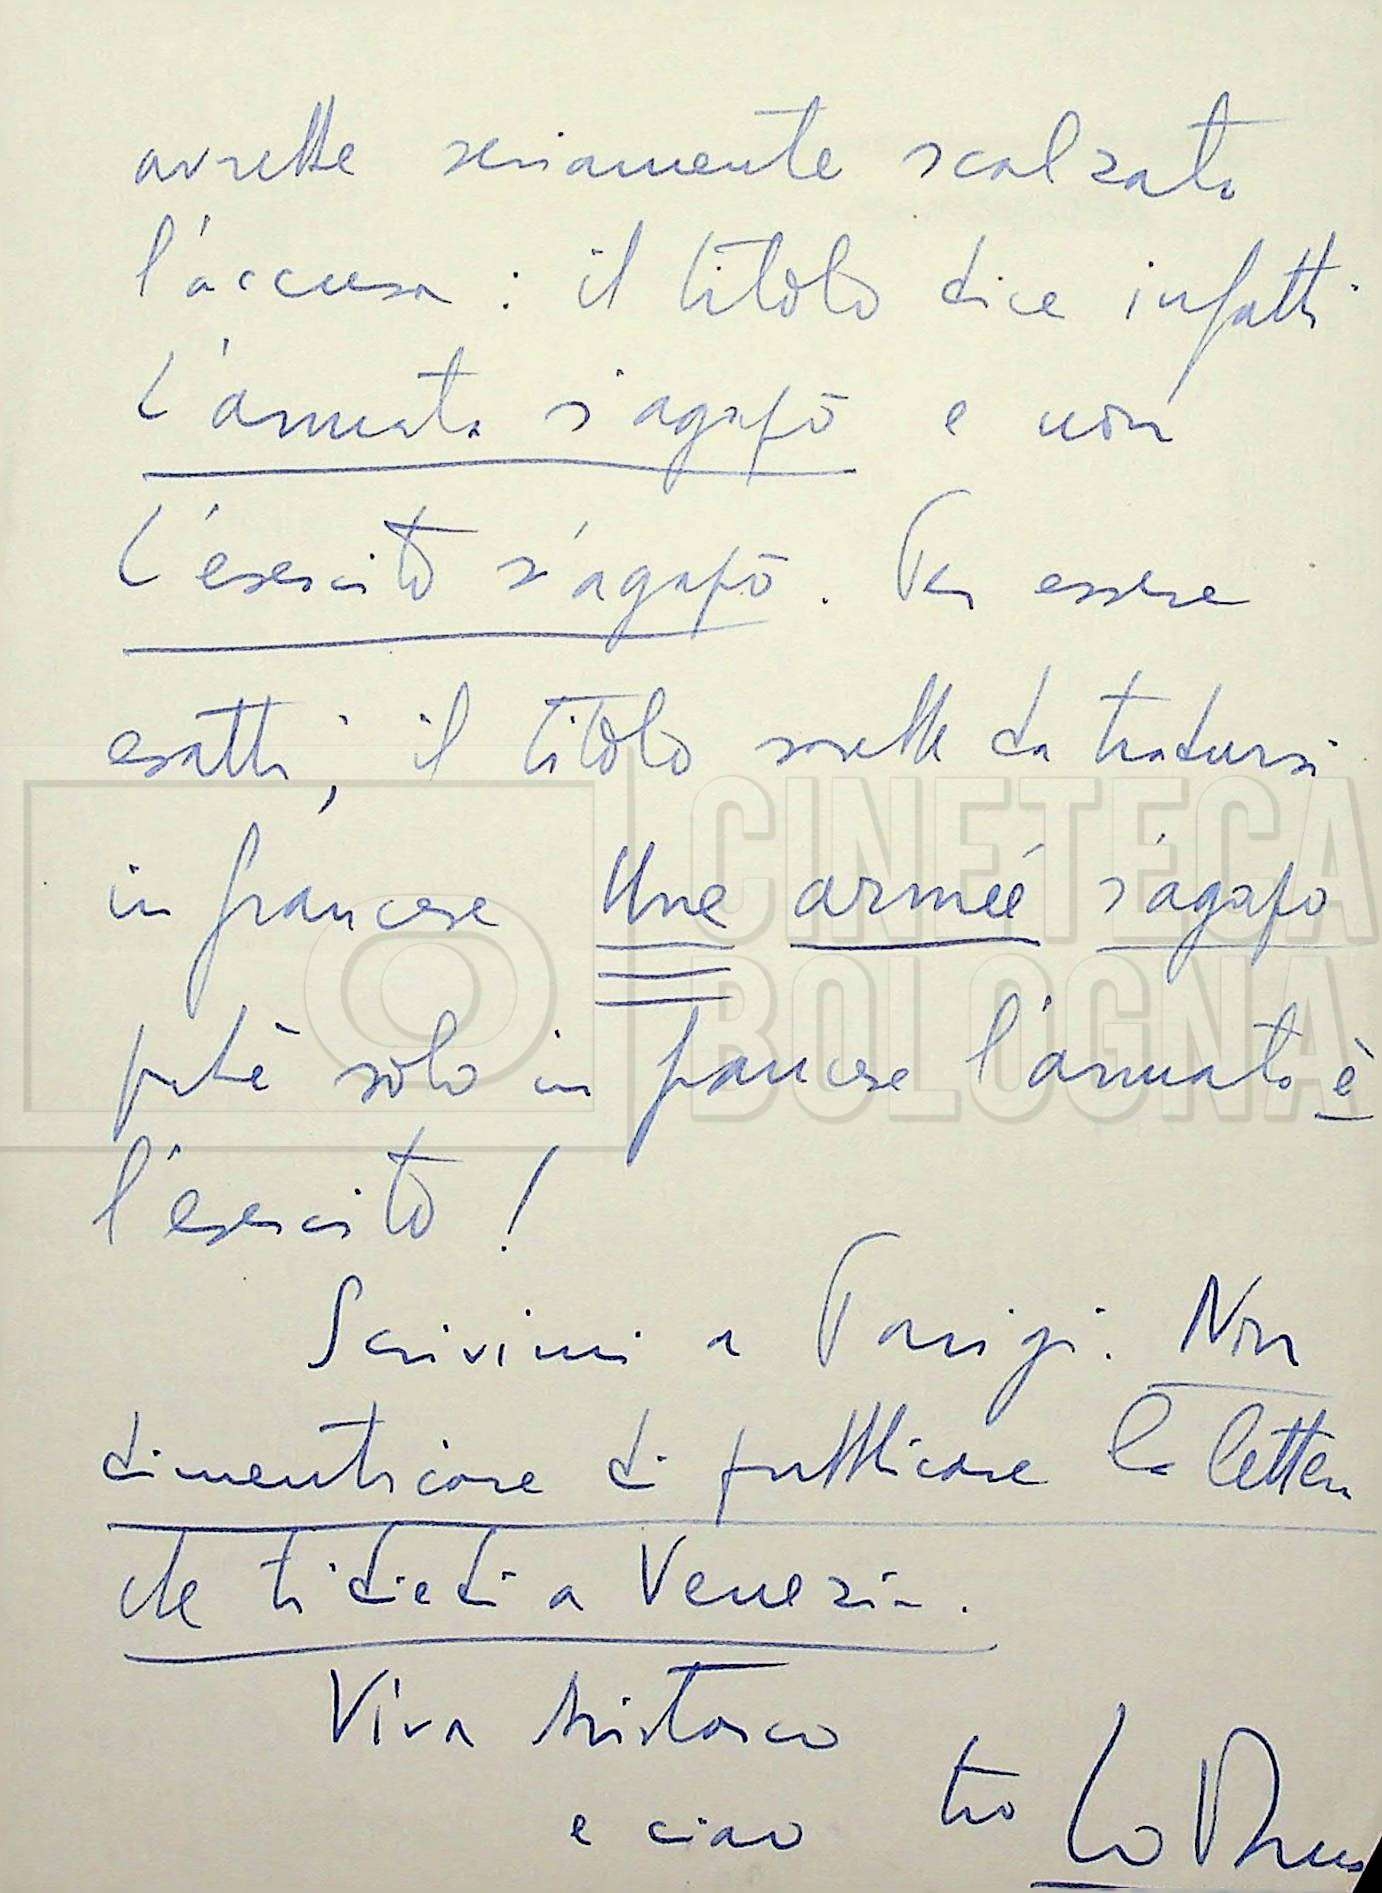 avrebbe seriamente scalzato
l'accusa : il titolo dice infatti
L'armata s'agapò e non
L'esercito s'agapò. Per essere
esatti, il titolo sarebbe da tradursi
in francese Une armée s'agapo
chè solo in francese l'armata è
l'esercito !
Scrivimi a Parigi. Non
dimenticare di pubblicare la lettera
che ti diedi a Venezia.
Viva Aristarco
e ciao tuo Lo Duca
CINETECA
BOLOGNA